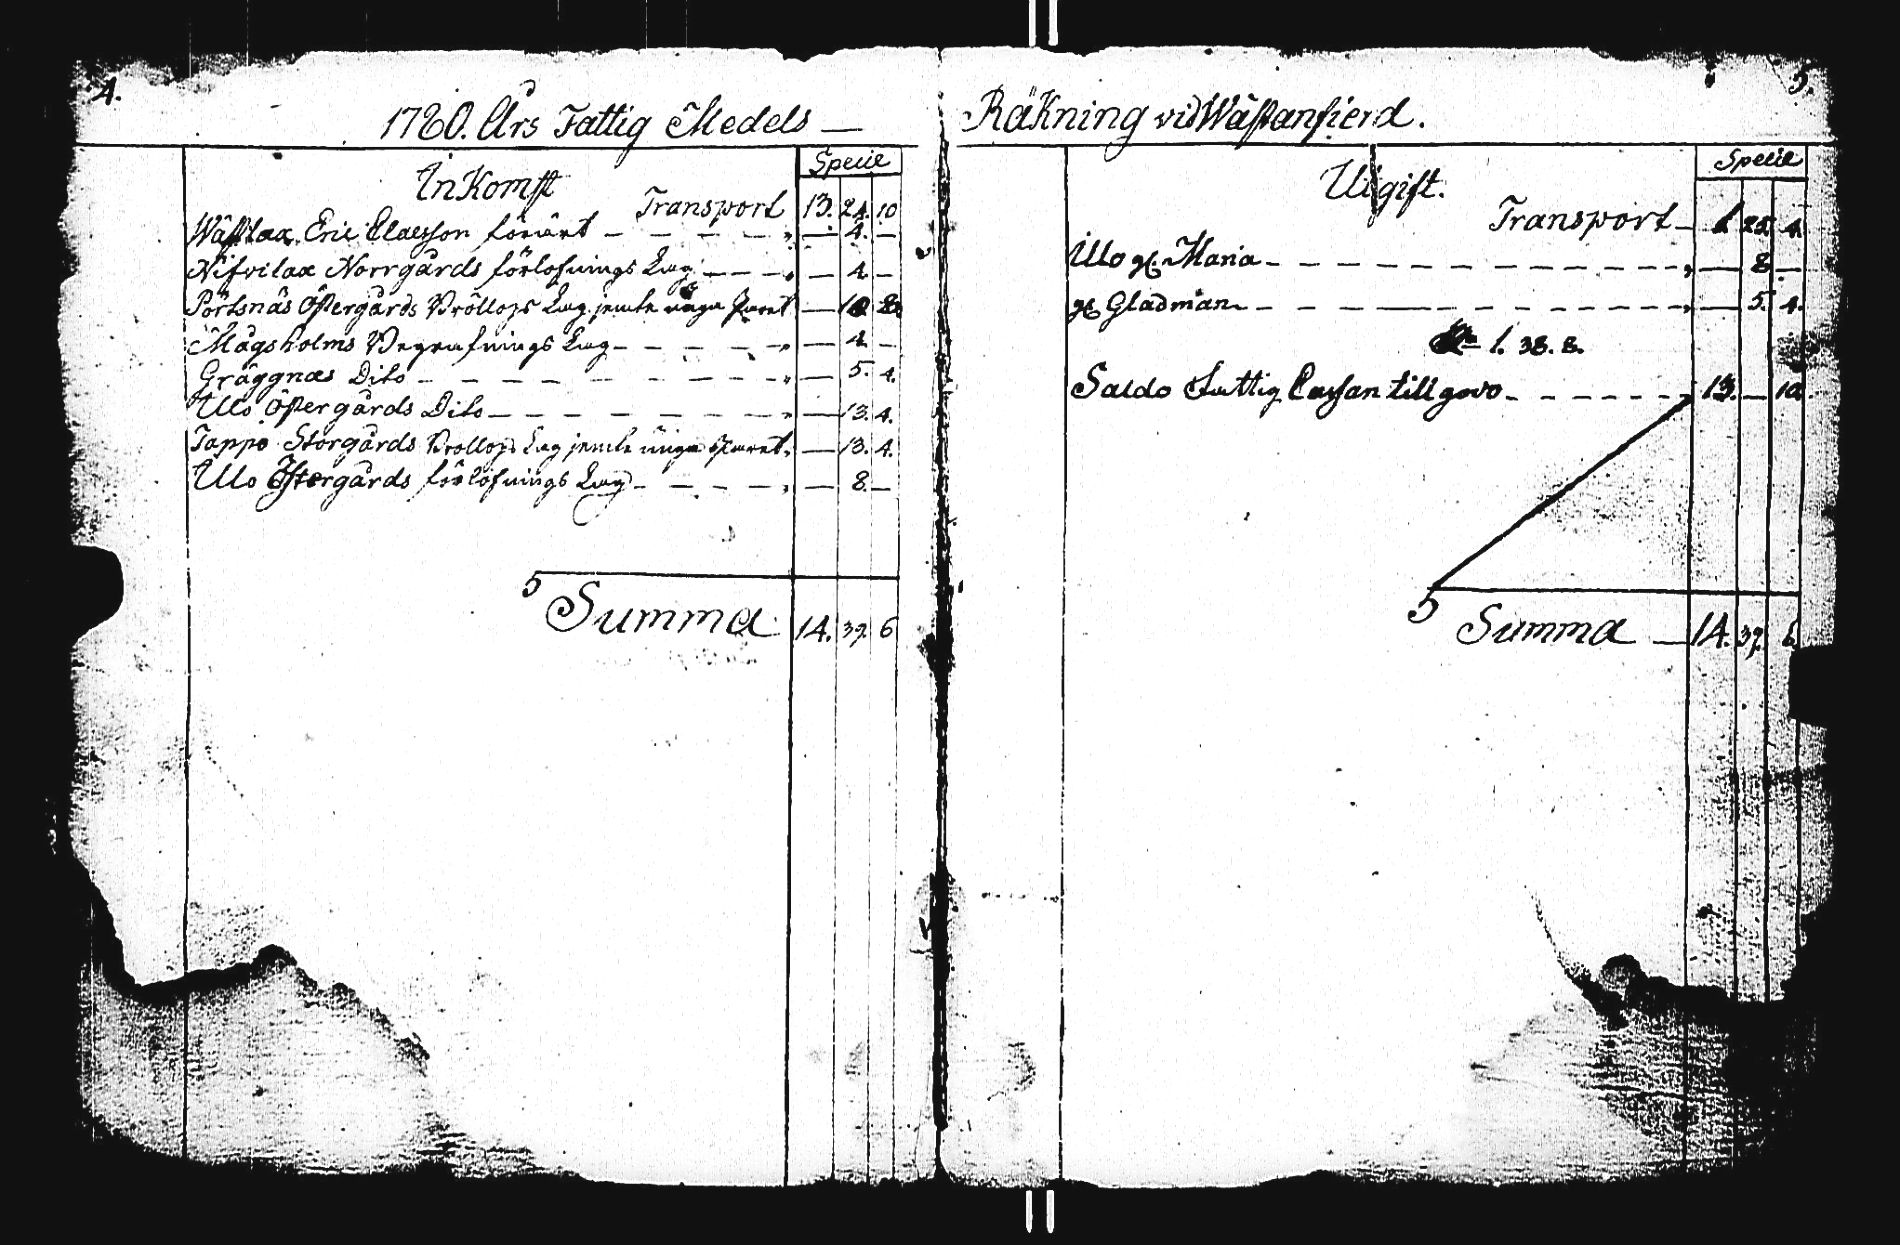 4.
1780. Års Fattig Medels —
Specie
InKomst
Transport 13. 24. 10
Wästlax Eric Claesson förärt — 4. —
Nifvilax Norrgårds förlofnings Lag — 4 —
Pörtsnäs Östergårds Bröllops Lag jemte unga Paret — 10 8.
Mågsholms Begrafnings Lag — 4 —
Gräggnäs Dito — 5. 4.
Ulo Östergårds Dito — 13. 4.
Tappo Storgårds Bröllops Lag jemte unga Paret — 13. 4.
Ulo Östergårds förlofnings Lag — 8. —
Summa 14. 39. 6
5.
Räkning vid Wästanfierd.
Specie
Utgift.
Transport — 1 25. 4.
Ulo gl. Maria — 8 —
gl. Gladman — 5. 4.
1. 38. 8.
Saldo Fattig Cassan tillgodo 13. — 10
Summa — 14. 39. 6